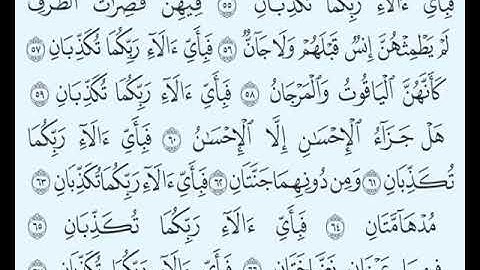 فَبِأَيِّ ءَالَآءِ رَبِّكُمَا تُكَذِّبَانِ ٥٥ فِيهِنَّ قَٰصِرَٰتُ الطَّرْفِ
لَمْ يَطْمِثْهُنَّ إِنسٌ قَبْلَهُمْ وَلَا جَآنٌّ ٥٦ فَبِأَيِّ ءَالَآءِ رَبِّكُمَا تُكَذِّبَانِ ٥٧
كَأَنَّهُنَّ الْيَاقُوتُ وَالْمَرْجَانُ ٥٨ فَبِأَيِّ ءَالَآءِ رَبِّكُمَا تُكَذِّبَانِ ٥٩
هَلْ جَزَآءُ الْإِحْسَٰنِ إِلَّا الْإِحْسَٰنُ ٦٠ فَبِأَيِّ ءَالَآءِ رَبِّكُمَا
تُكَذِّبَانِ ٦١ وَمِن دُونِهِمَا جَنَّتَانِ ٦٢ فَبِأَيِّ ءَالَآءِ رَبِّكُمَا تُكَذِّبَانِ ٦٣
مُدْهَآمَّتَانِ ٦٤ فَبِأَيِّ ءَالَآءِ رَبِّكُمَا تُكَذِّبَانِ ٦٥
فِيهِمَا عَيْنَانِ نَضَّاخَتَانِ ٦٦ فَبِأَيِّ ءَالَآءِ رَبِّكُمَا تُكَذِّبَانِ